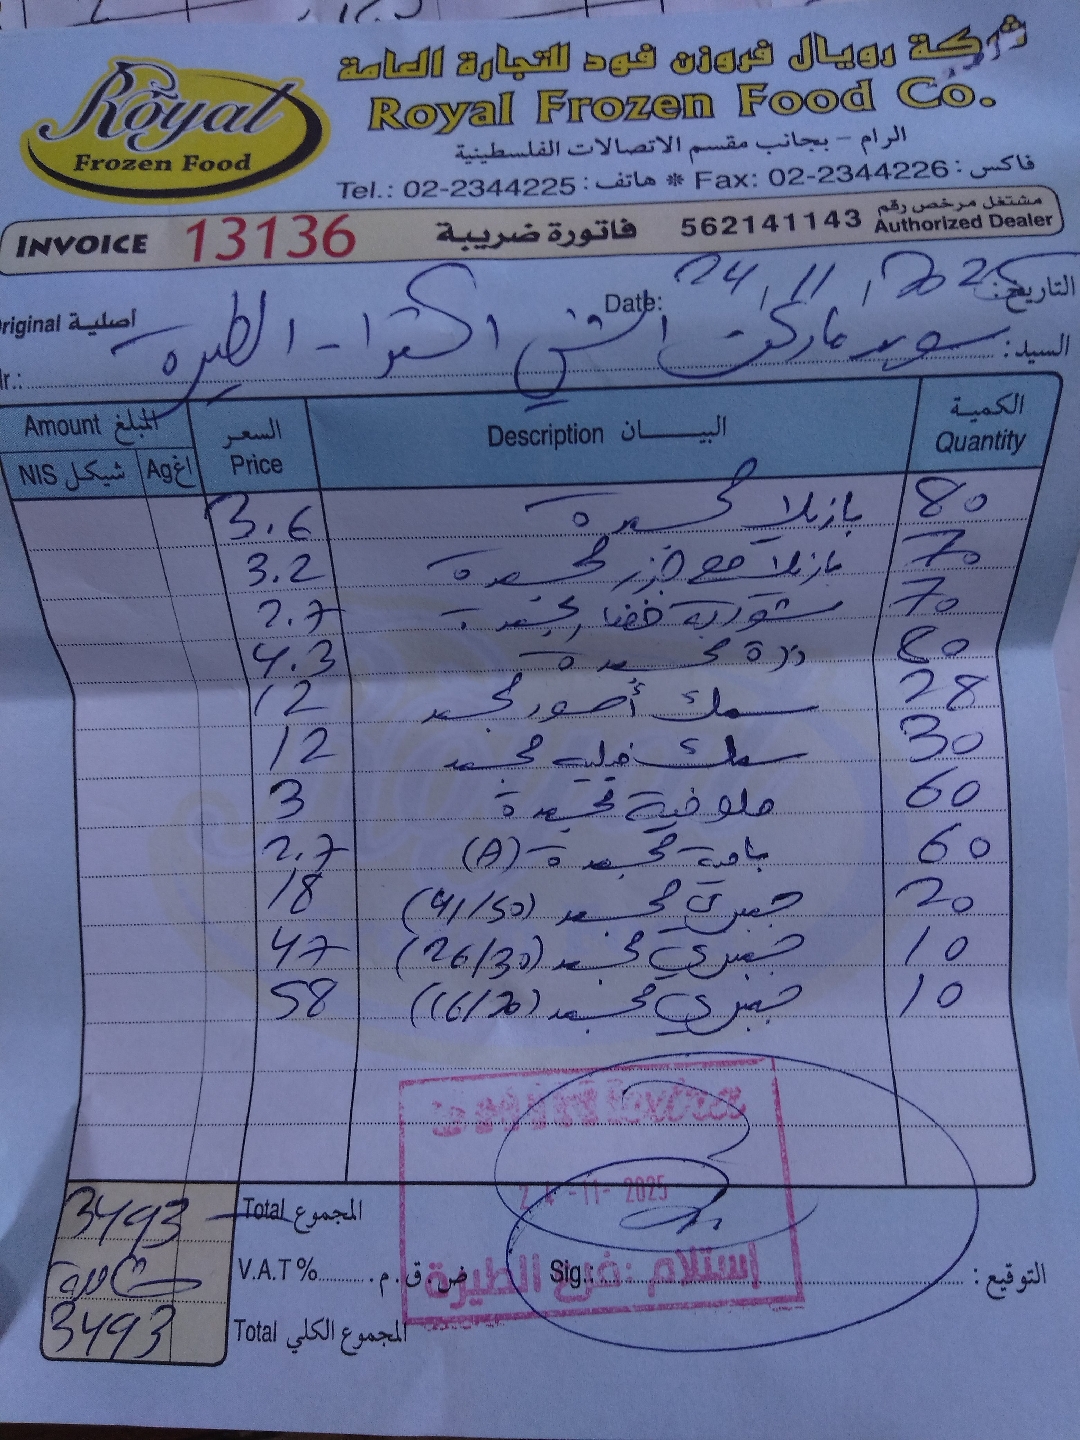 شركة رويال فروزن فود للتجارة العامة
Royal Frozen Food
Royal Frozen Food Co.
الرام - بجانب مقسم الاتصالات الفلسطينية
Tel.: 02-2344225 : هاتف * Fax: 02-2344226 : فاكس
INVOICE 13136 فاتورة ضريبة 562141143 مشتغل مرخص رقم Authorized Dealer
Original أصلية Date: 24/11/2025 التاريخ:
Mr.: سوبر ماركت اكسترا - الطيرة السيد:
Amount المبلغ السعر Price البيــان Description الكمية Quantity
NIS شيكل Ag اغ
3.6 بازيلا مجمدة 80
3.2 بازيلا مع جزر مجمدة 70
2.7 شوربة خضار مجمدة 70
4.3 ذرة مجمدة 80
12 سمك مجمد 28
12 سمك فيليه مجمد 30
3 ملوخية مجمدة 60
2.7 بامية مجمدة (A) 60
18 جمبري مجمد (41/50) 20
47 جمبري مجمد (26/30) 10
58 جمبري مجمد (16/20) 10
3493 Total المجموع
V.A.T% ض.ق.م.
3493 Total المجموع الكلي
Extra
24-11-2025
استلام: فرع الطيرة
Sig.: التوقيع: